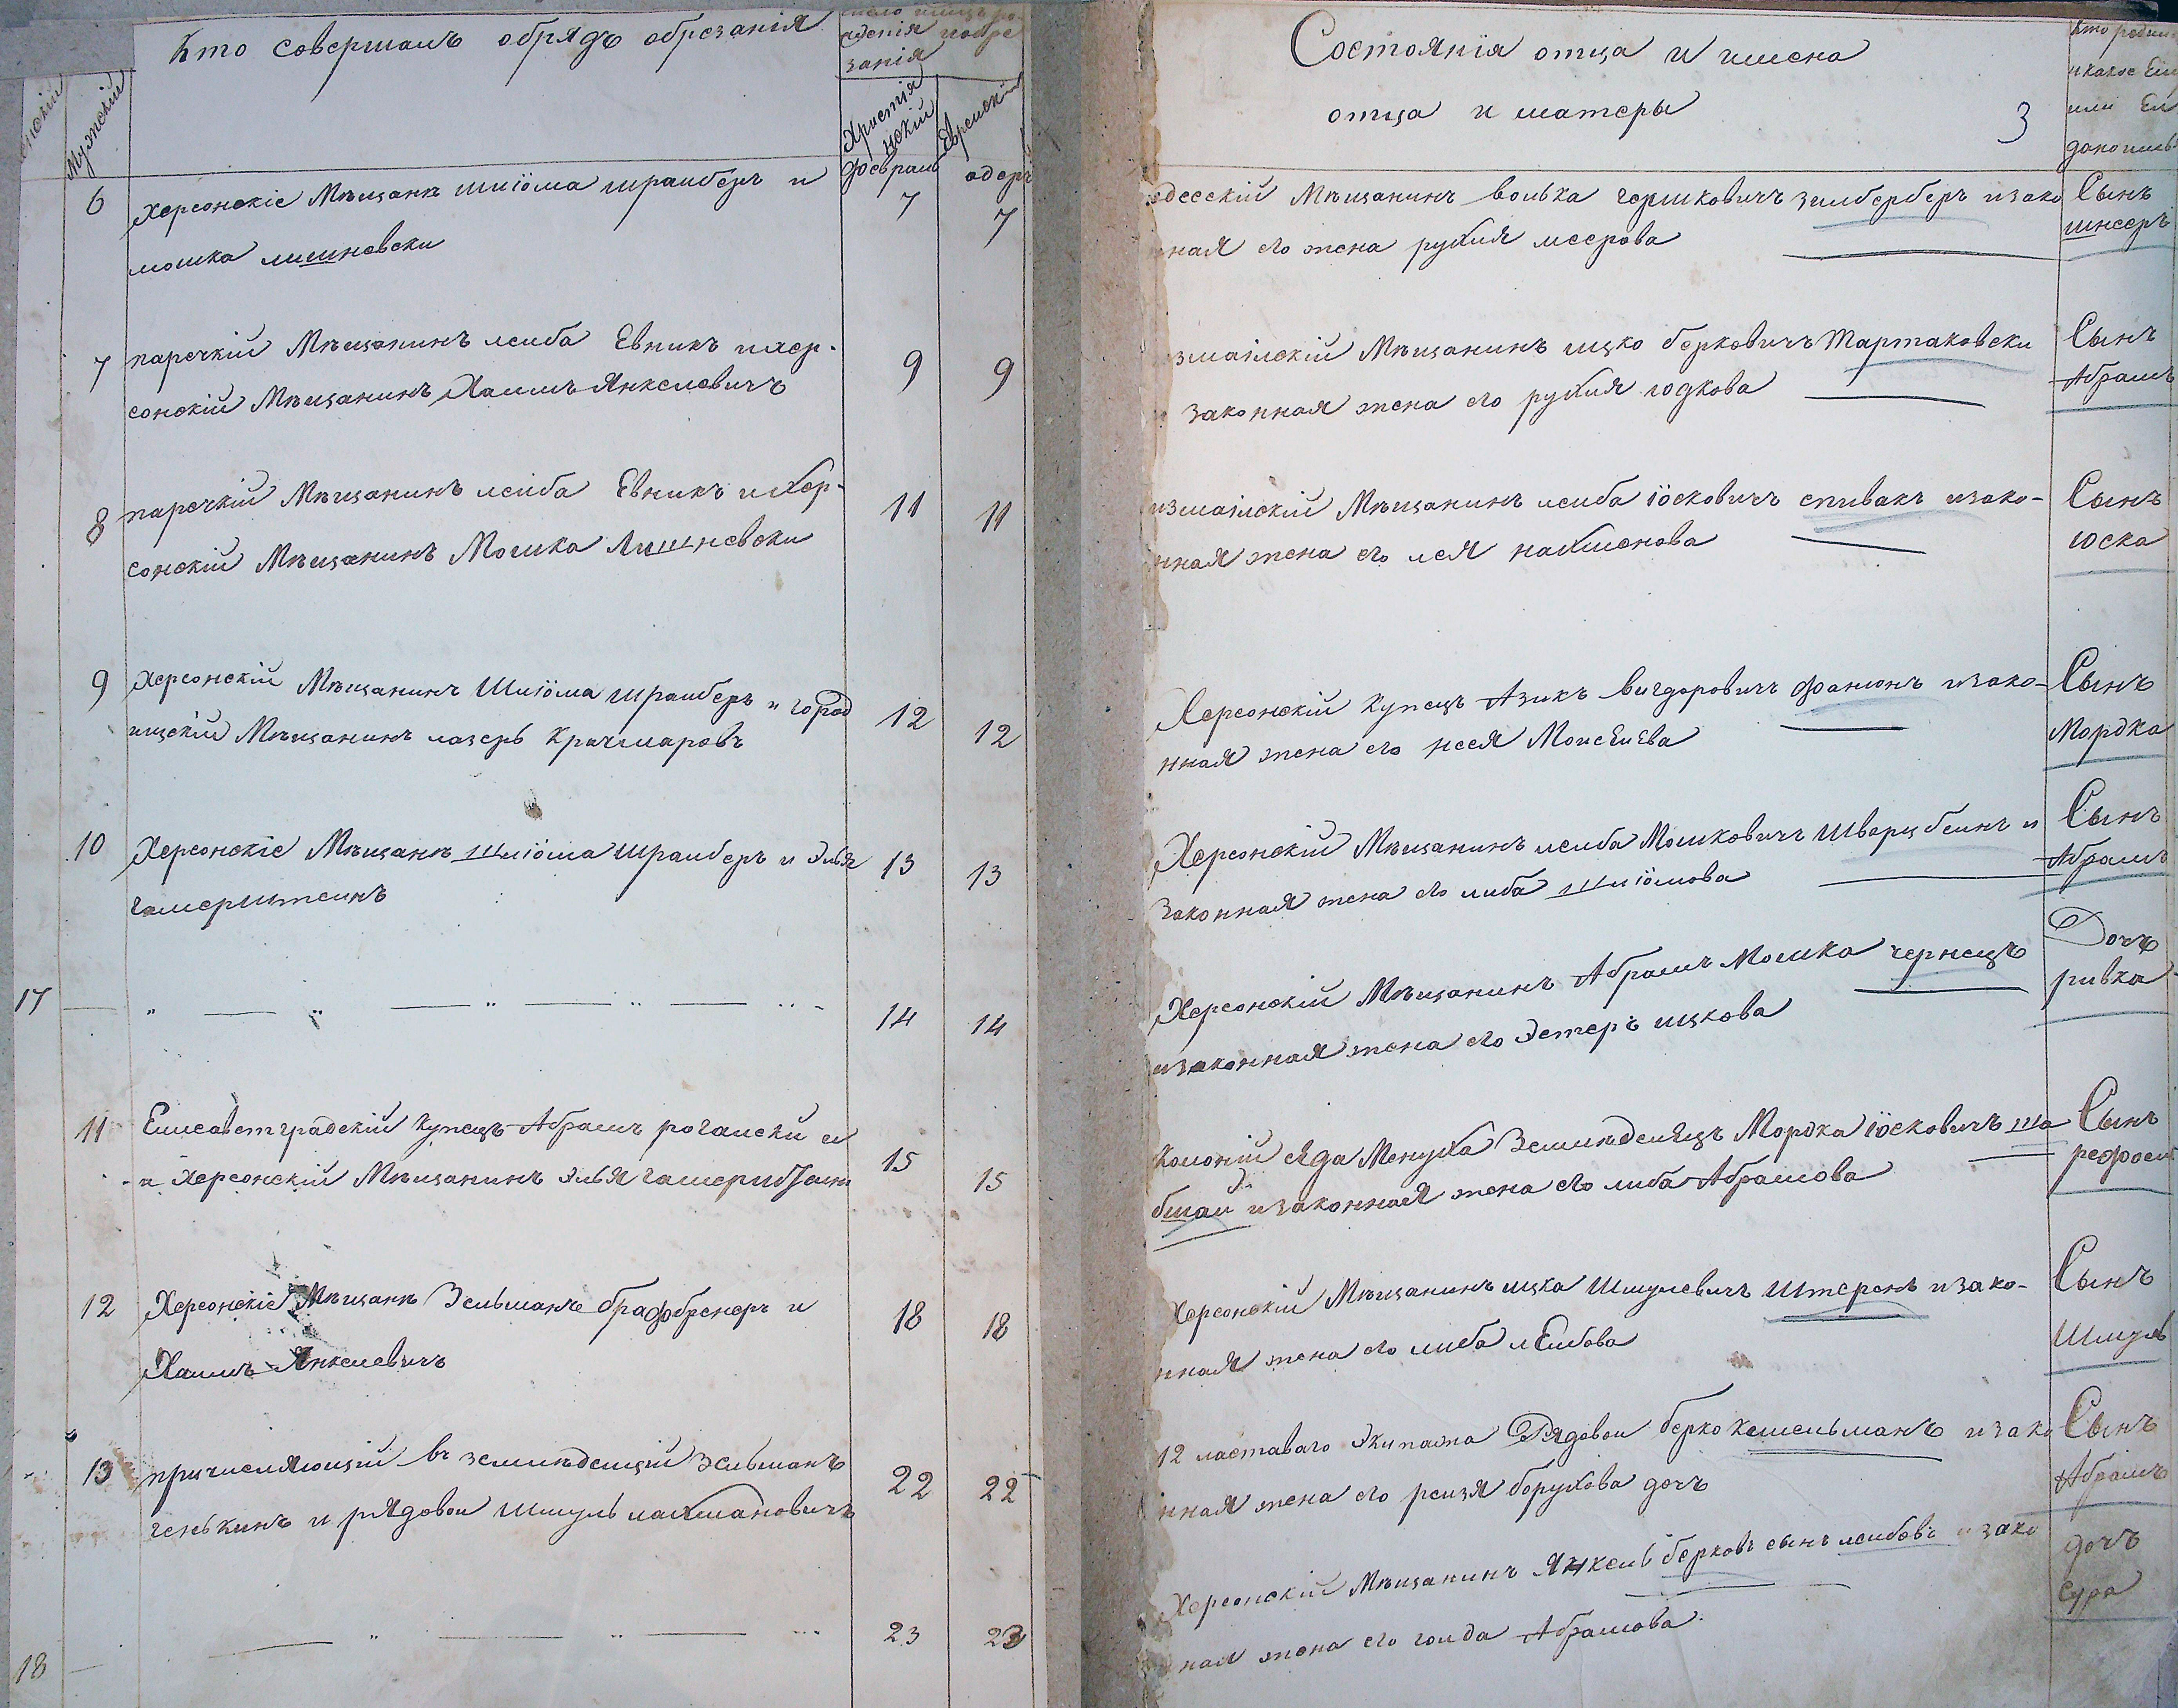 Кто совершалъ обрядъ обрезанія
Мужскій
Христіянскій
Еврейскій
Февраль
адеръ
6
Херсонскіе Мѣщане шліома шраиберъ и
мошка лишневски
7
7
7
паречкій Мѣщанинъ леиба Евникъ и хер-
сонскій Мѣщанинъ Хаимъ Янкеловичъ
9
9
8
паречкій Мѣщанинъ леиба Евникъ и хер-
сонскій Мѣщанинъ Мошка Лишневски
11
11
9
Херсонскій Мѣщанинъ Шліома шраиберъ и город
ищскій Мѣщанинъ лазерь Крачмаровъ
12
12
10
Херсонскіе Мѣщане шліома шраиберъ и Элья
гамерштеинъ
13
13
17
14
14
11
Елисаветградскій купецъ Абрамъ рогалски и
и Херсонскій Мѣщанинъ Элья
15
15
12
Херсонскіе Мѣщане Зельманъ брафбренеръ и
Хаимъ Янкелевичъ
18
18
13
причисляющій въ земледѣлцы Зельманъ
генькинъ и рядовои Шмуль лахмановичъ
22
22
18
23
23
Состоянія отца и имена
отца и матеры
3
одесскій Мѣщанинъ волька гершковичъ зилберберъ и зако
нная его жена рухля меерова
Сынъ
шнееръ
измаилскій Мѣщанинъ ицко берковичъ Тартаковски
и законная жена его рухля годкова
Сынъ
Абрамъ
измаилскій Мѣщанинъ леиба іосковичъ спивакъ и зако-
нная жена его лея нахменова
Сынъ
юска
Херсонскій купецъ Азикъ вигдоровичъ фанионъ и зако-
нная жена его нося Моисѣиева
Сынъ
Мордка
Херсонскій Мѣщанинъ леиба Мошковичъ Шварцбеинъ и
законная жена его либа шліомова
Сынъ
Абрамъ
Херсонскій Мѣщанинъ Абрамъ Мошка чернецъ
и законная жена его Эстеръ ицкова
Дочъ
ривка
колоній Сяда Менуха Земледѣлецъ Мордка іосковичъ ша
бшаи и законная жена его либа Абрамова
Сынъ
рефоель
Херсонскій Мѣщанинъ ицка Шмулевичъ Штеренъ и зако-
нная жена его либа лЕибова
Сынъ
Шмуль
12 ластаваго Экипажа Рядовои берко кесельманъ и зако
нная жена его реизя борухова дочъ
Сынъ
Абрамъ
Херсонскій Мѣщанинъ Янкель берковъ сынъ леибовъ и зако
ная жена его голда Абрамова
дочъ
Сура